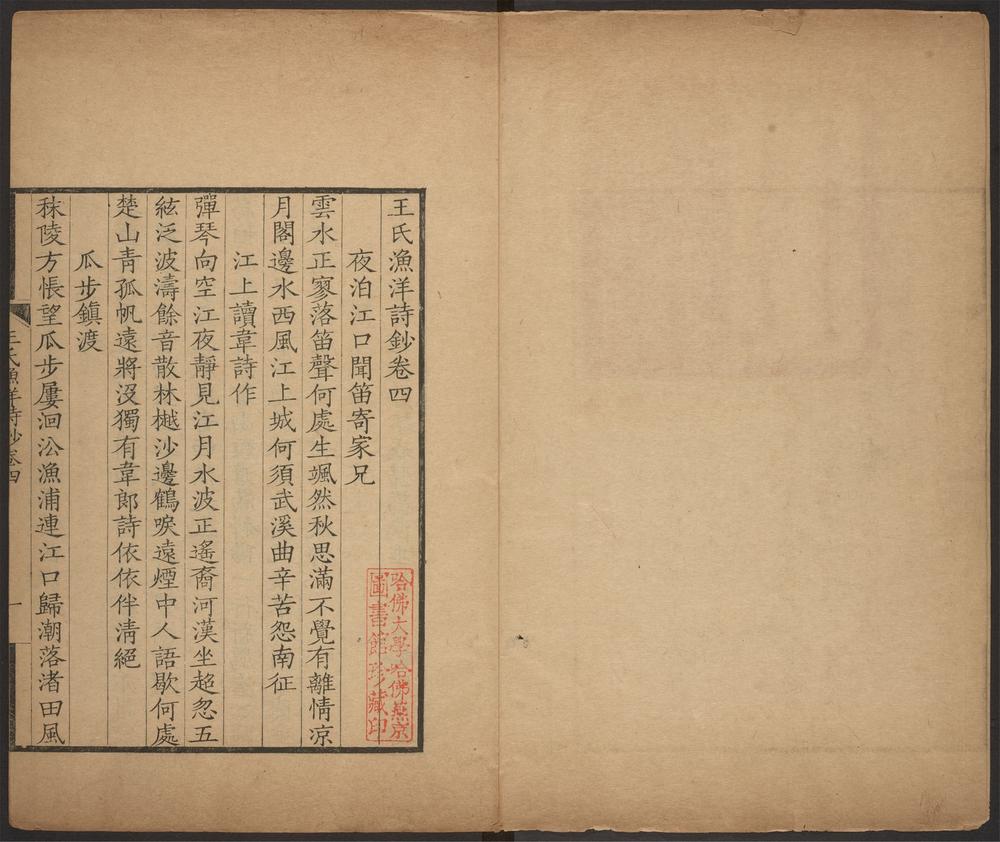 王氏漁洋詩鈔卷四
夜泊江口聞笛寄家兄
雲水正寥落笛聲何處生颯然秋思滿不覺有離情凉
月閣邊水西風江上城何須武溪曲辛苦怨南征
江上讀韋詩作
彈琴向空江夜靜見江月水波正遙裔河漢坐超忽五
絃泛波濤餘音散林樾沙邊鶴唳遠煙中人語歇何處
楚山青孤帆遠將沒獨有韋郎詩依依伴清絕
瓜步鎮渡
秣陵方悵望瓜步屢洄沿漁浦連江口歸潮落渚田風
王氏漁洋詩鈔卷四
一
哈佛大學哈佛燕京
圖書館珍藏印